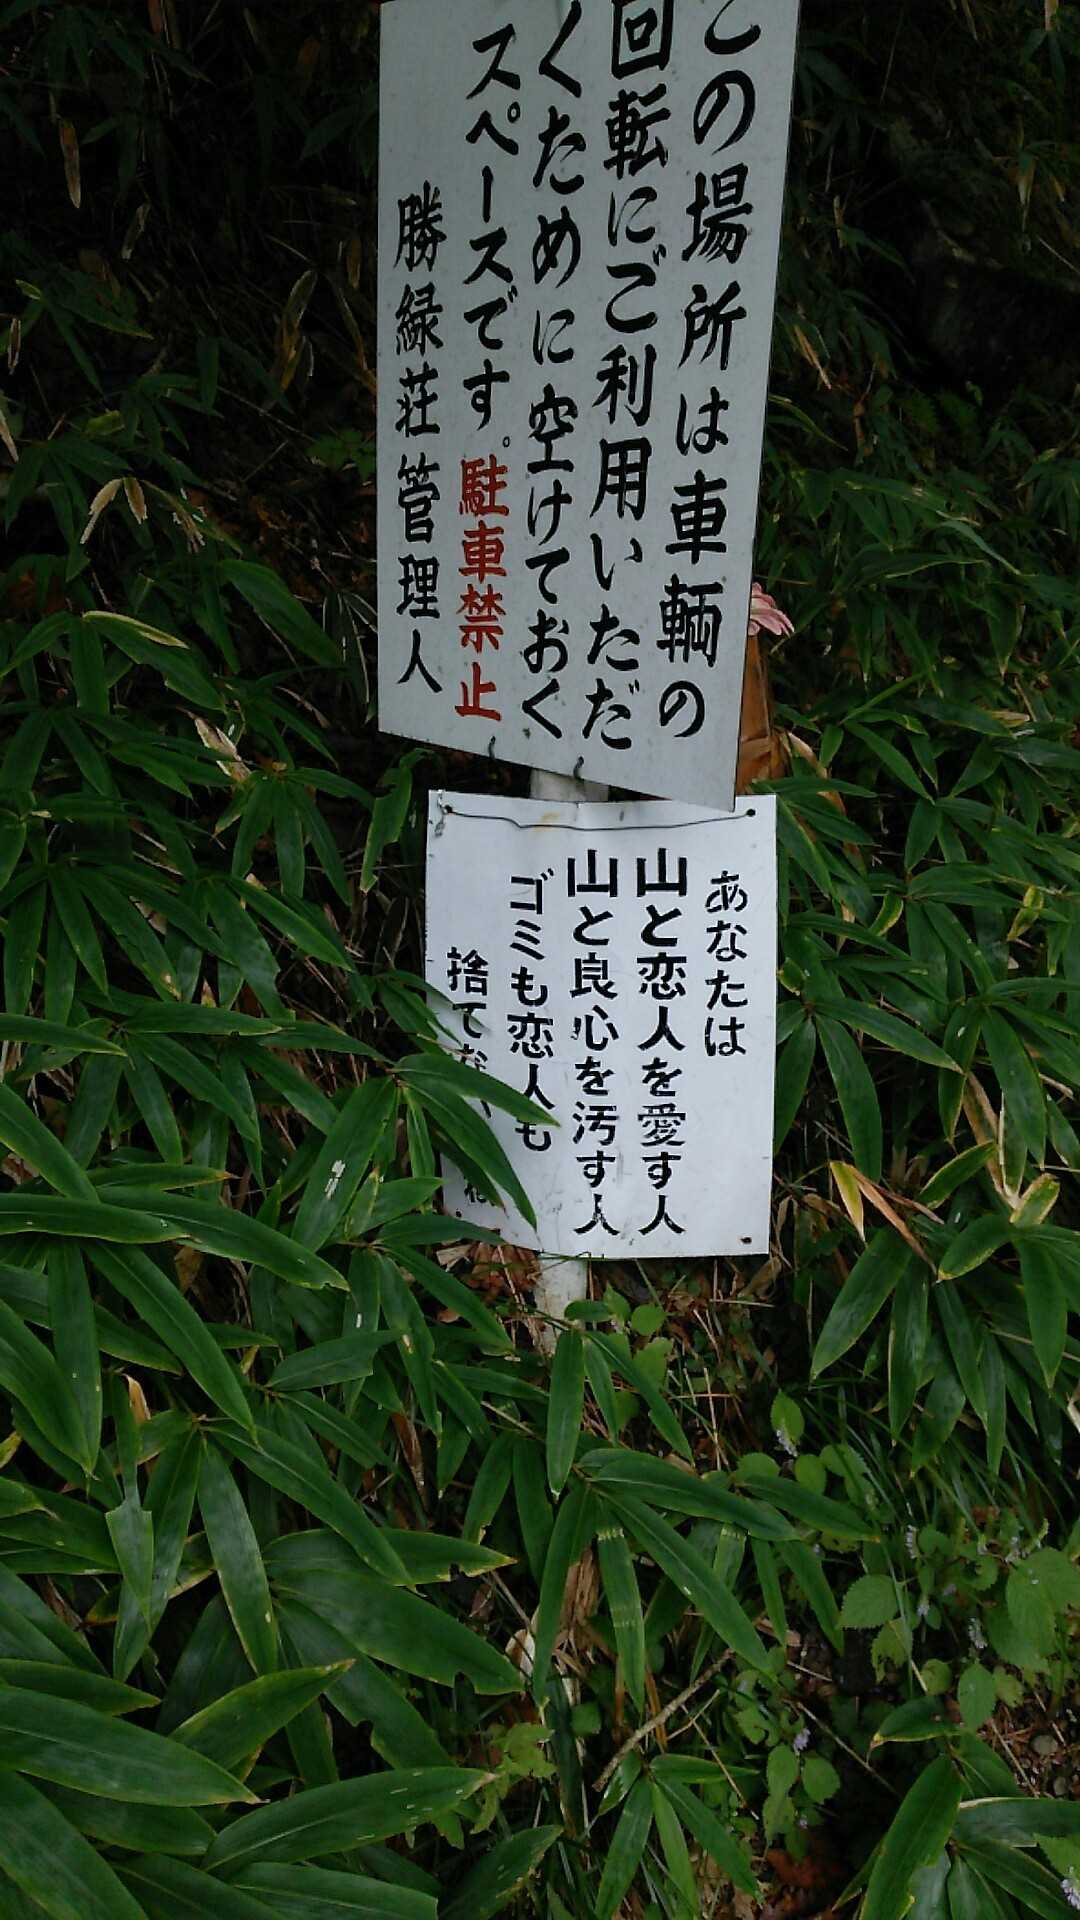 この場所は車輌の
回転にご利用いただ
くために空けておく
スペースです。駐車禁止
勝緑荘管理人
あなたは
山と恋人を愛す人
山と良心を汚す人
ゴミも恋人も
捨てな